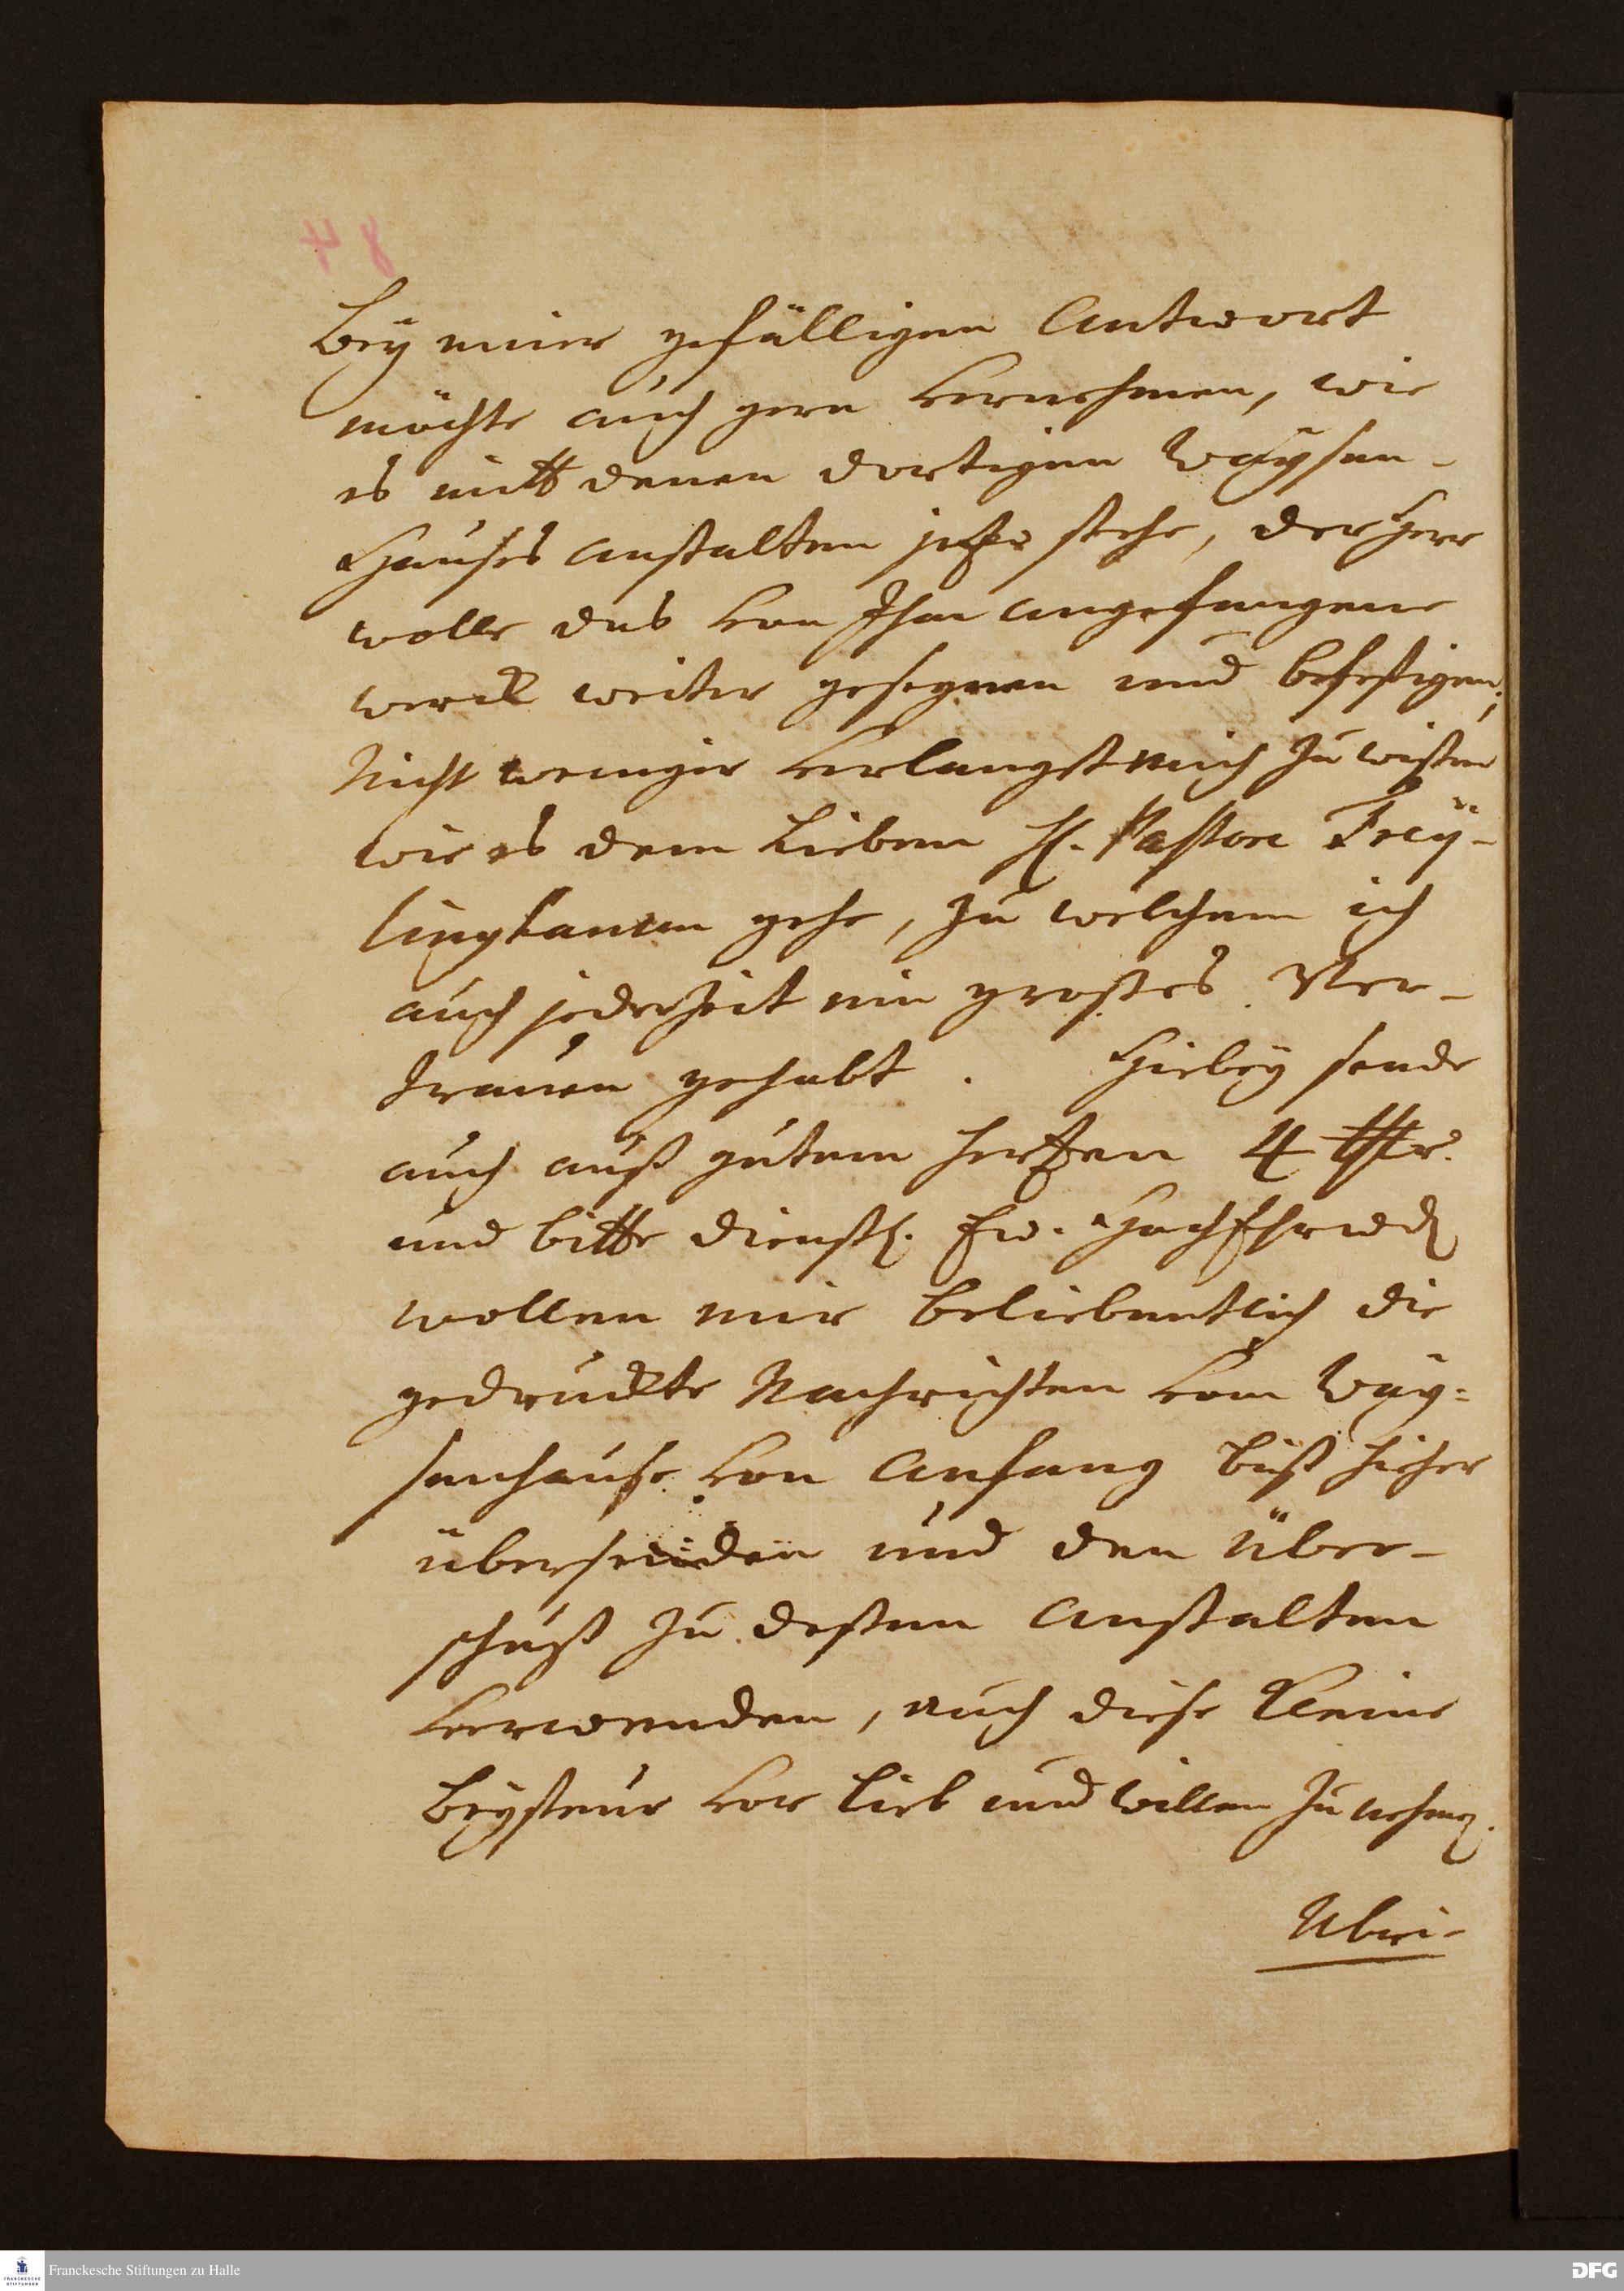 Bey einer gefälligen Antwort
möchte auch gern vernehmen, wie
es mitt denen dortigen Waysen-
Hauses anstalten jetzo stehe, der Herr
wolle das von Ihm angefangene
werck weiter gesegnen und befestigen;
Nicht weniger verlangst mich zu wißen
wie es dem Lieben H. Pastore Frey-
linghausen gehe, zu welchem ich
auch jederzeit ein großes Ver-
trauen gehabt. Hiebey sende
auch auß gutem hertzen 4 thlr.
und bitte dienstl. Ew. HochEhrwd
wollen mir beliebentlich die
gedruckte Nachrichten vom Way-
senhause von Anfang biß hieher
übersenden und den über-
schuß zu deßen Anstalten
verwenden, auch diese kleine
Beysteur vor lieb und willen zu nehmen.
Ubri-
Franckesche Stiftungen zu Halle
DFG